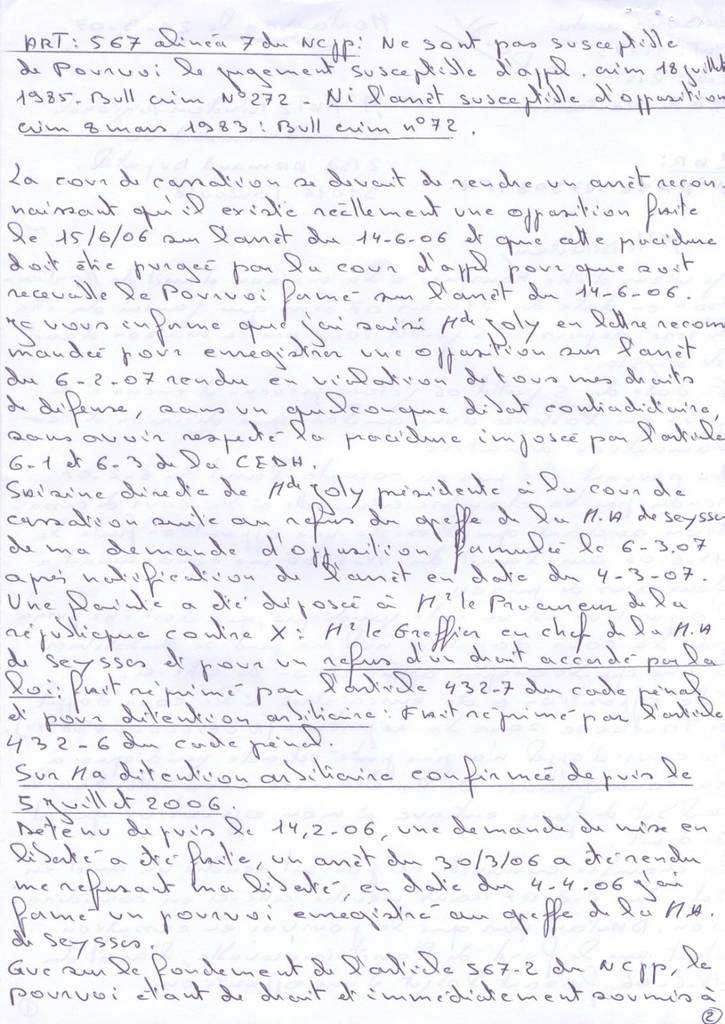 ART: 567 alinéa 7 du NCpp: Ne sont pas susceptible
de Pourvoi le jugement susceptible d'appl. crim 18 juillet
1985. Bull crim N°272 - Ni l'arrêt susceptible d'opposition
crim 8 mars 1983: Bull crim n°72.
La cour de cassation se devait de rendre un arrêt recon
naissant qu'il existe réellement une opposition faite
le 15/6/06 sur l'arrêt du 14-6-06 et que cette procédure
doit être purgée par la cour d'appl pour que soit
recevable le Pourvoi formé sur l'arrêt du 14-6-06.
Je vous informe que j'ai saisi Mde Joly en lettre recom
mandée pour enregistrer une opposition sur l'arrêt
du 6-2-07 rendu en violation de tous mes droits
de défense, sans un quelconque débat contradictoire,
sans avoir respecté la procédure imposée par l'article
6-1 et 6-3 de la CEDH.
Saisine directe de Mde Joly présidente à la cour de
cassation suite au refus du greffe de la M.A de Seysses
de ma demande d'opposition formulée le 6-3-07
après notification de l'arrêt en date du 4-3-07.
Une plainte a été déposée à Mr le Procureur de la
république contre X: Mr le Greffier en chef de la M.A
de Seysses et pour un refus d'un droit accordé par la
loi: fait réprimé par l'article 432-7 du code pénal
et pour détention arbitraire. Fait réprimé par l'article
432-6 du code pénal.
Sur Ma détention arbitraire confirmée depuis le
5 juillet 2006.
Détenu depuis le 14,2-06, une demande de mise en
liberté a été faite, un arrêt du 30/3/06 a été rendu
me refusant ma liberté, en date du 4-4-06 j'ai
formé un pourvoi enregistré au greffe de la M.A.
de Seysses.
Que sur le fondement de l'article 567-2 du NCpp, le
pourvoi étant de droit et immédiatement soumis à
2